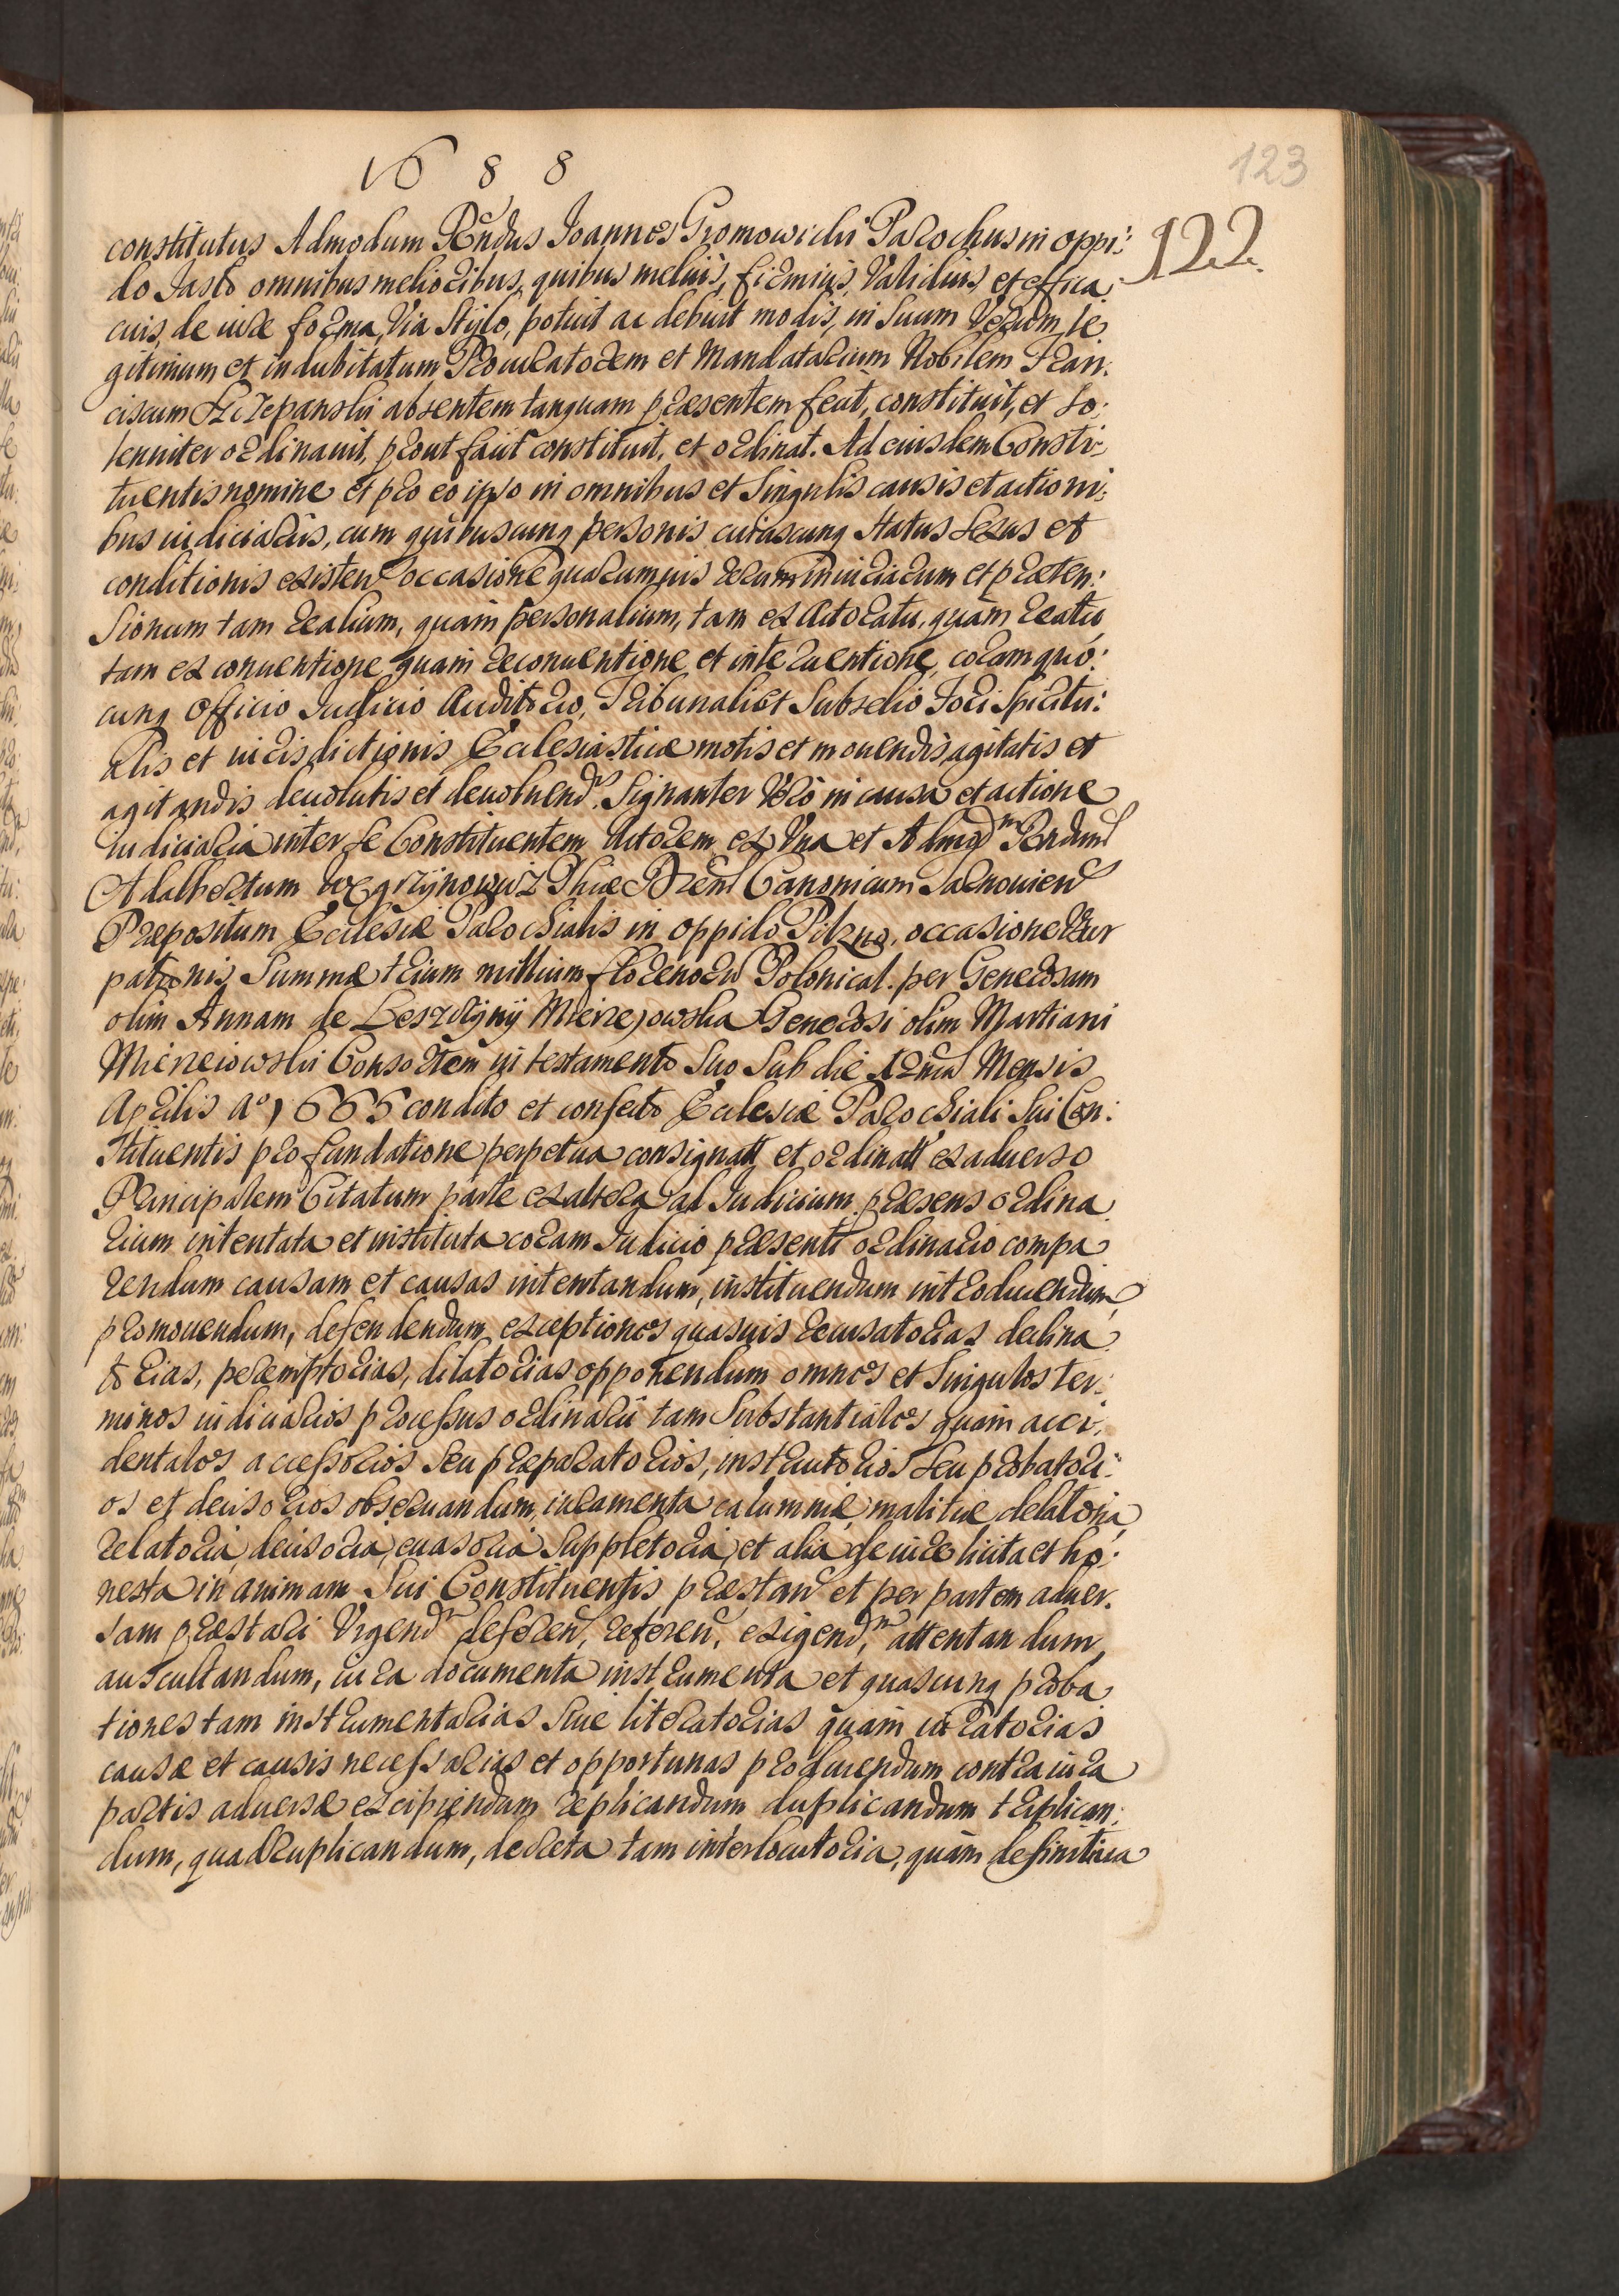 1688
123
122
constitutus Admodum Rndus Joannes Gromowichi Parochus in oppi:
do Jasło omnibus melioribus, quibus melius, firmius, Validius, et effica
cius, de iure forma, Via Stylo, potuit ac debuit modis, in Suum Verum, le
gitimum et indubitatum Procuratorem et Mandatarium Nobilem Fran:
ciscum Szczepanski absentem tanquam præsentem fecit, constituit, et So:
lenniter ordinavit, prout facit constituit, et ordinat. Ad eiusdem Consti:
tuentis nomine et pro eo ipso in omnibus et Singulis causis et actioni:
bus iudiciariis, cum quibuscunq personis cuiuscunq Status Sexus et
conditionis existen occasione quarumuis rerum iniuriarum et præten:
Sionum tam realium, quam personalium, tam ex Actoratu, quàm reatu
tam ex conuentione quam reconuentione et interuentione, coram quo:
cunq Officio Judicio Auditorio, Tribunali et Subselio Fori Spiritu:
alis et iurisdictionis Ecclesiasticæ motis et mouendis, agitatis et
agitandis deuolutis et deuoluend. Signanter Verò in causa et actione
iudiciaria inter se Constituentem Actorem ex Vna et Admod Rndum
Adalbertum Węgrzynowicz Phiæ Canonicum Tarnouien
Præpositum Ecclesiæ Parochialis in oppido Pilzno, occasione Vsur
pationis Summæ trium millium florenorum Polonical. per Generosam
olim Annam de Mierzejowska Generosi olim Martiani
Mierzeiowski Consortem in testamento Suo Sub die Mensis
Aprilis Ao 1666 condito et confecto Ecclesiæ Parochiali Sui Con:
stituentis pro fundatione perpetua consignatt et ordinatt ex aduerso
Principalem Citatum parte ex altera ad Judicium præsens ordina
rium intentata et instituta coram Judicio præsenti ordinario compa
rendum causam et causas intentandum, instituendum introducendum
promouendum, defendendum exceptiones quasuis recusatorias declina
torias, peremptorias, dilatorias opponendum omnes et Singulos ter:
minos iudiciarios processus ordinarii tam Substantiales quam acci:
dentales accessorios Seu præparatorios, instructorios Seu probatori:
os et decisorios obseruandum, iuramenta calumniæ, malitiæ delatoria,
relatoria, decisoria, euasoria Suppletoria, et alia de iure licita et ho:
nesta in animam Sui Constituentis, præstan et per partem aduer:
Sam præstari Vrgend deferen, referen, exigend, attentandum,
auscultandum, iura documenta instrumenta et quascunq proba
tiones tam instrumentarias Siue literatorias quam iuratorias
causæ et causis necessarias et opportunas producendum contra iura
partis aduersæ excipiendum replicandum duplicandum triplican:
dum, quadruplicandum, decreta tam interlocutoria, quàm definitiua